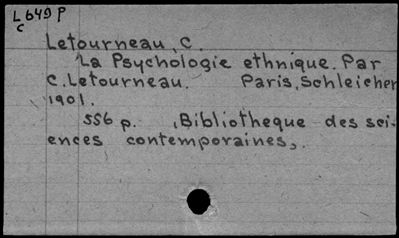 L649P
C
Letourneau, C.
La Psychologie ethnique. Par
C. Letourneau. Paris, Schleicher
1901.
556 p. (Bibliotheque des sci-
ences contemporaines).